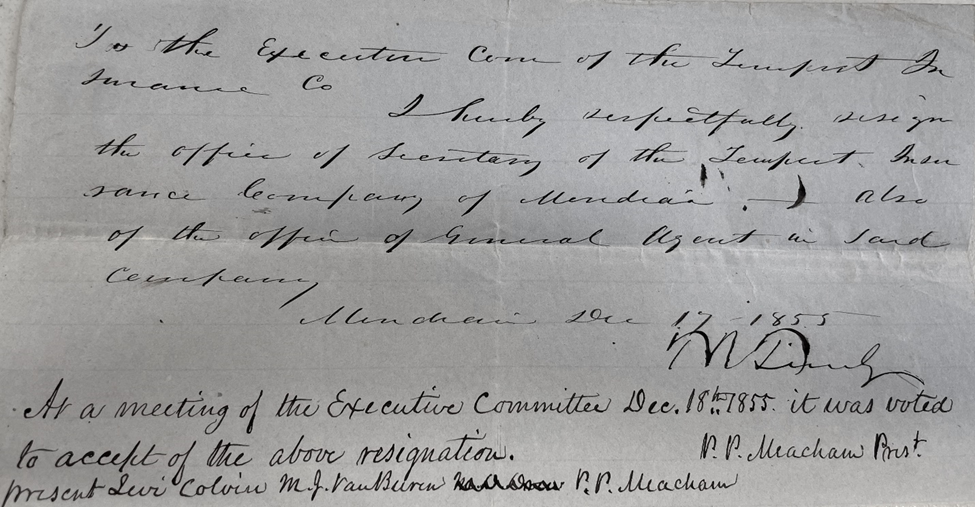 To the Executive Com of the Tempest In
surance Co
I hereby respectfully resign
the office of Secretary of the Tempest Insu
rance Company of Meridian — also
of the office of General Agent in said
company
Meridian Dec 17 - 1855
At a meeting of the Executive Committee Dec. 18th 1855. it was voted
to accept of the above resignation. P. P. Meacham Prest.
present Levi Colvin M. J. Van Buren P. P. Meacham